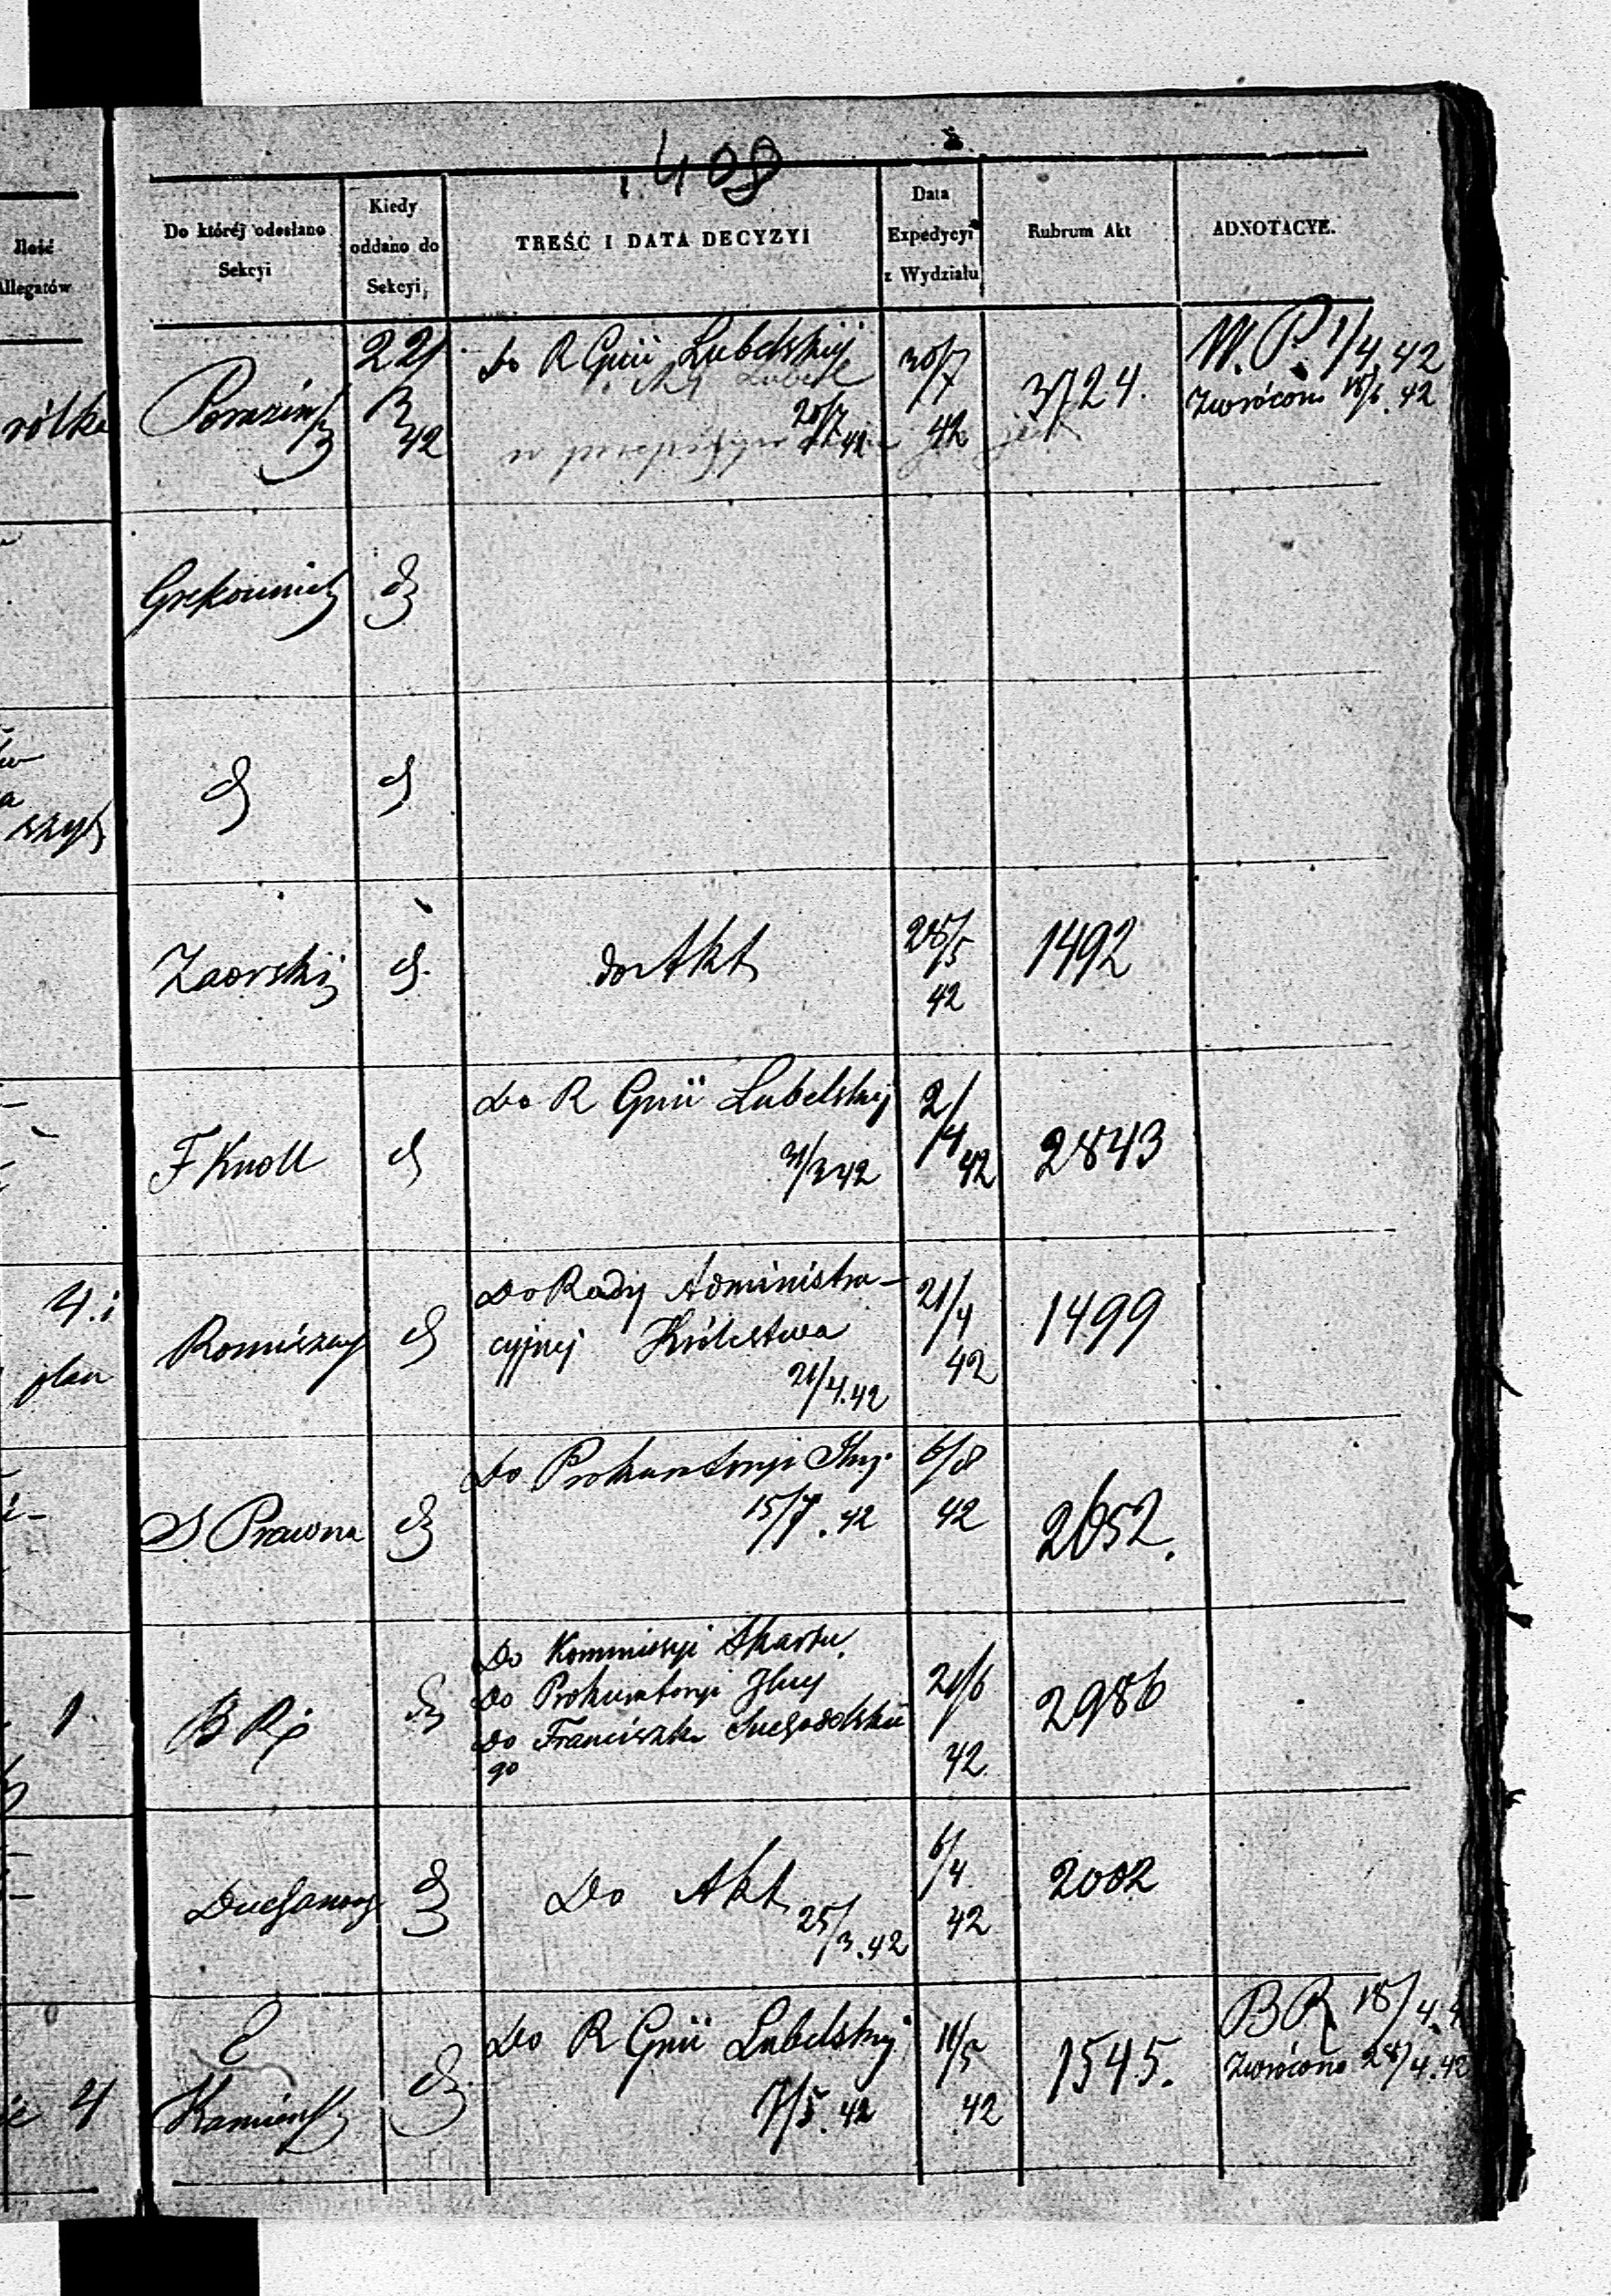 408
Ilość
Allegatów
Do któréj odesłano
Sekcyi
Kiedy
oddano do
Sekcyi
TREŚĆ I DATA DECYZYI
Data
Expedycyi
z Wydziału
Rubrum Akt
ADNOTACYE.
rólke
22/
3
42
do R Gnii Lubelskiej
20/7
42
30/7
42
3724.
W. P. 1/4 42
Zwrócono 18/6. 42
Zaorski
do Akt
28/5
42
1492
F Knoll
do R Gnii Lubelskiej
31/3 42
2/
4
42
2843
4. i
plan
Do Rady Administra-
cyjnej Królestwa
21/4. 42
21/
4
42
1499
S Prawna
Do Prokuratoryi
15/7. 42
6/8
42
2652.
1.
Do Kommissyi Skarbu
Do Prokuratoryi
Do Franciszka Suchodolskie
go
21/6
42
2986
Do Akt
25/3. 42
6/
4
42
2002
4
Kamieński
Do R Gnii Lubelskiej
7/5. 42
11/5
42
1545.
BR 18/4.4
Zwrócono 28/4. 42